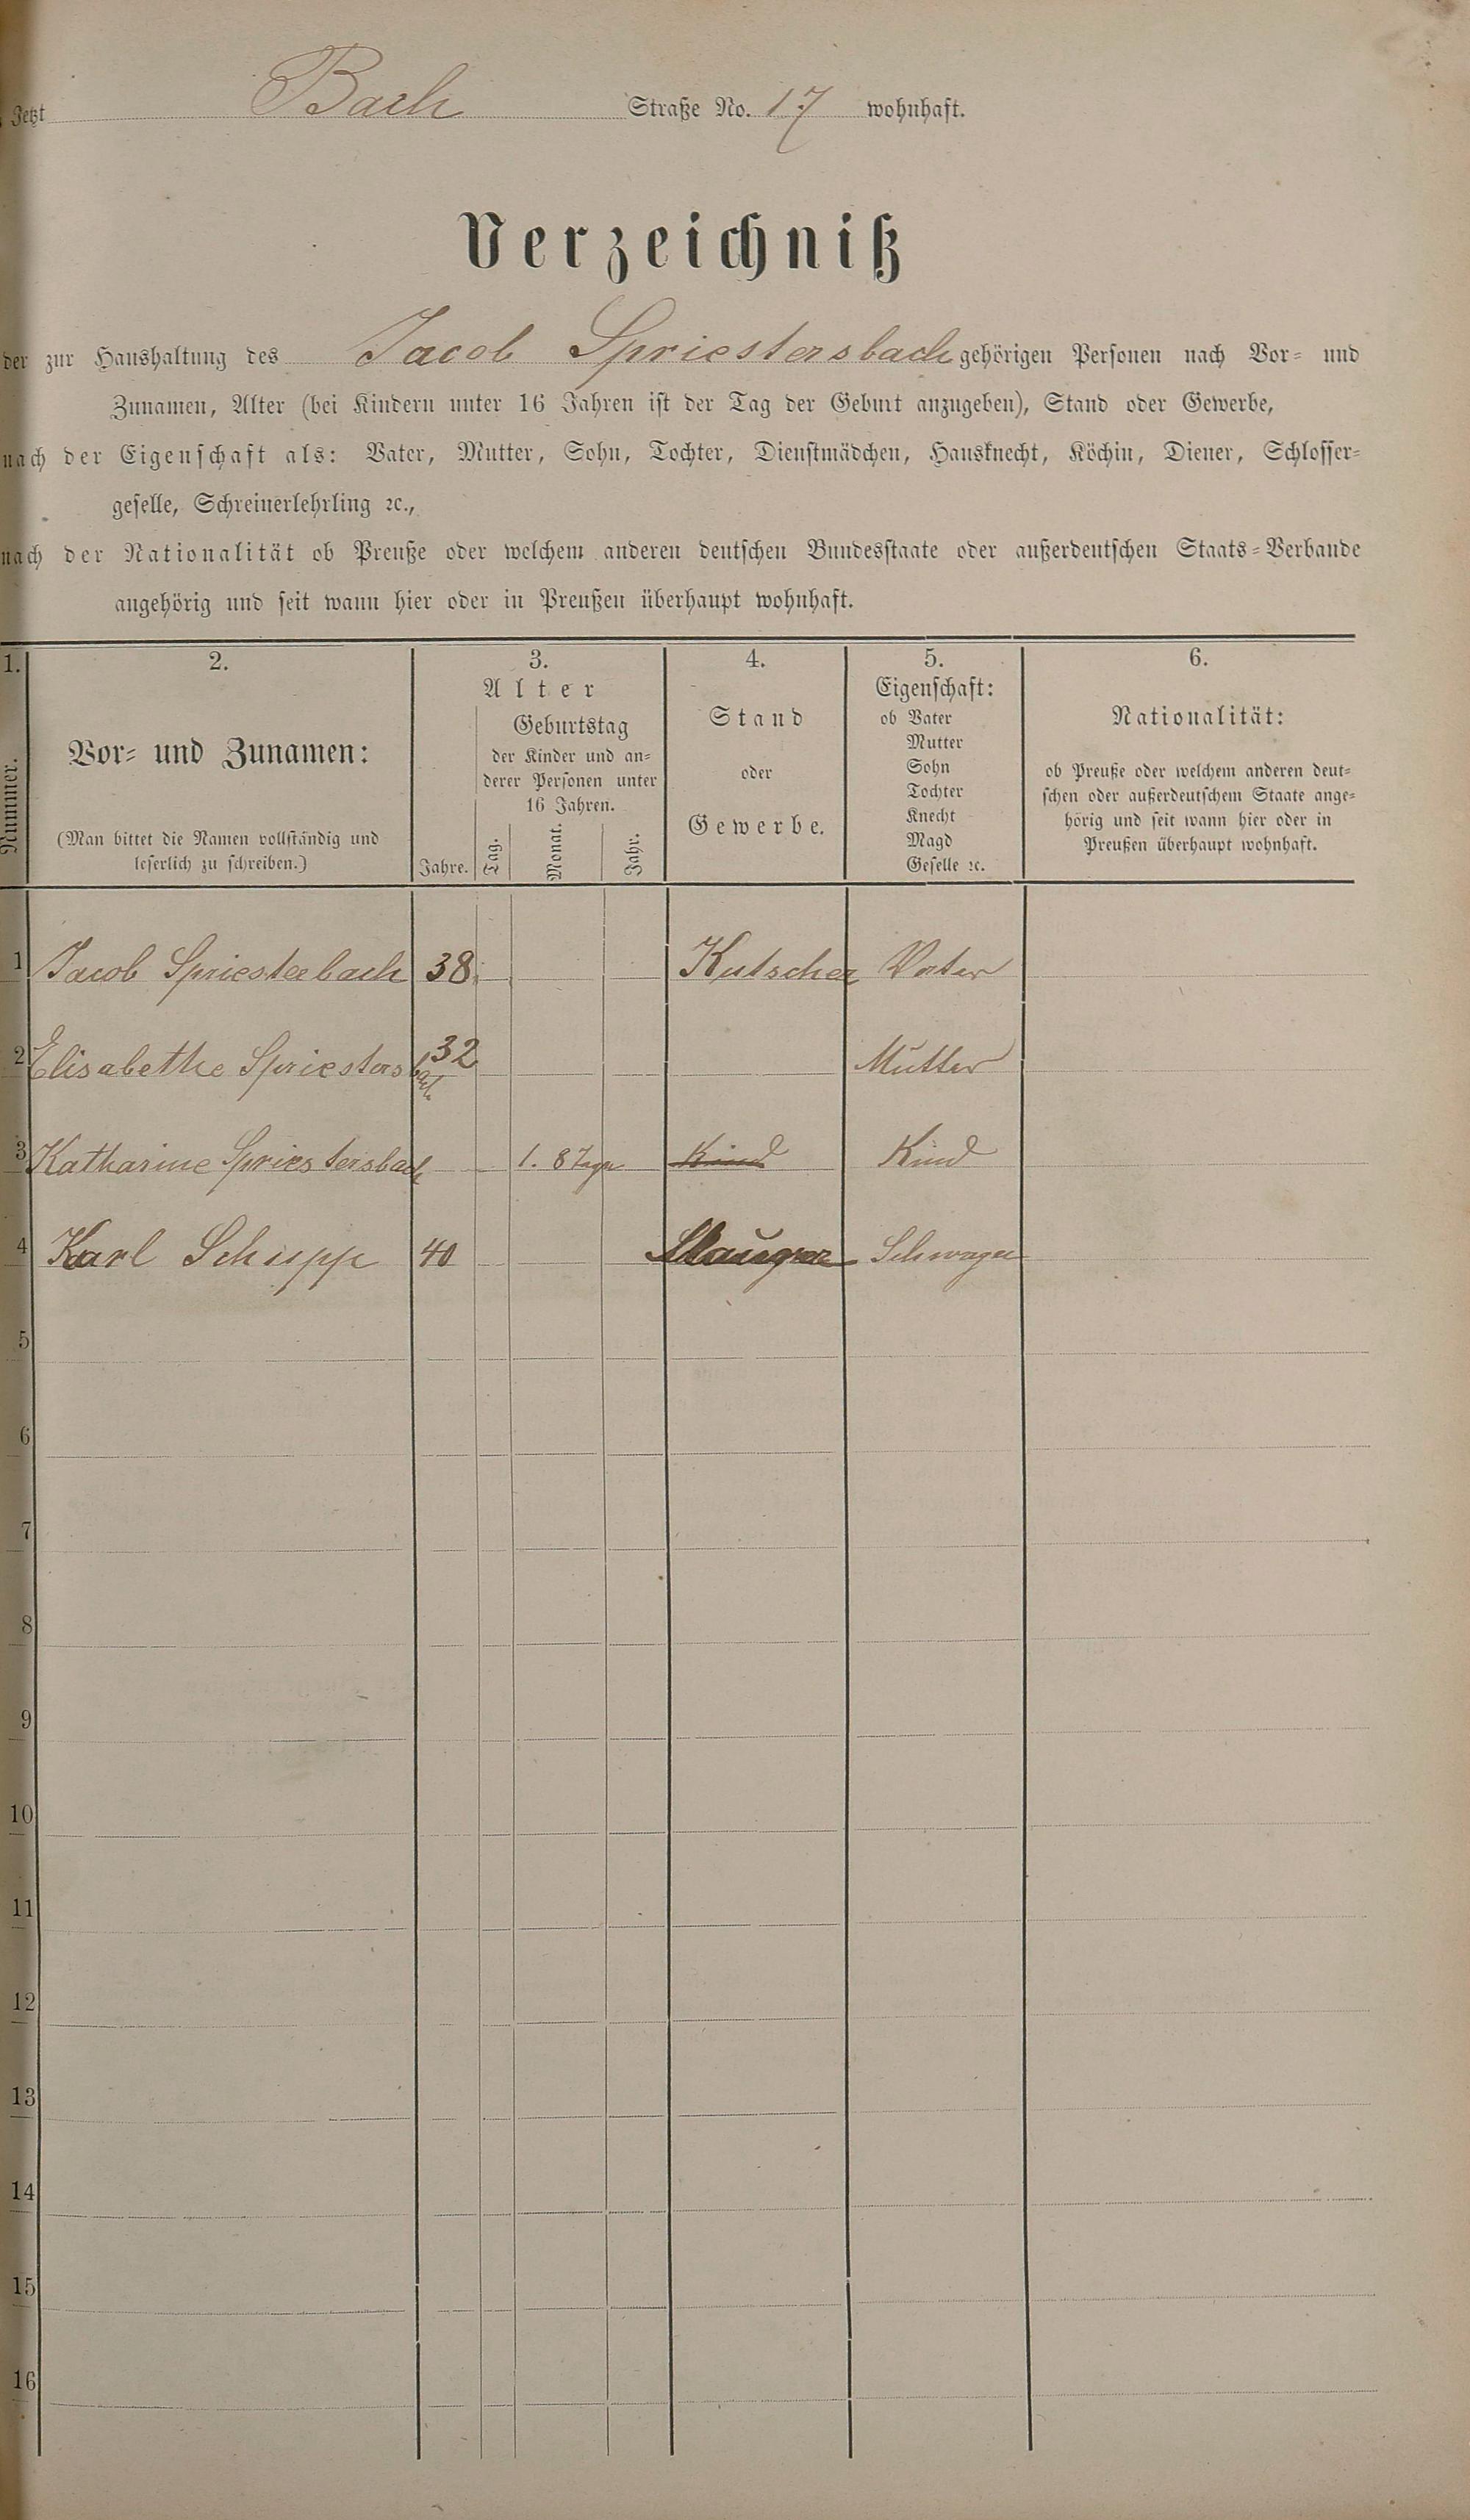 Jetzt Bach Straße No. 17 wohnhaft.
Verzeichniß
der zur Haushaltung des Jacob Spriestersbach gehörigen Personen nach Vor- und
Zunamen, Alter (bei Kindern unter 16 Jahren ist der Tag der Geburt anzugeben), Stand oder Gewerbe,
nach der Eigenschaft als: Vater, Mutter, Sohn, Tochter, Dienstmädchen, Hausknecht, Köchin, Diener, Schlosser-
geselle, Schreinerlehrling ꝛc.,
nach der Nationalität ob Preuße oder welchem anderen deutschen Bundesstaate oder außerdeutschen Staats-Verbande
angehörig und seit wann hier oder in Preußen überhaupt wohnhaft.
1.
Nummer.
2.
Vor- und Zunamen:
(Man bittet die Namen vollständig und
leserlich zu schreiben.)
3.
Alter
Jahre.
Geburtstag
der Kinder und an-
derer Personen unter
16 Jahren.
Tag. Monat. Jahr.
4.
Stand
oder
Gewerbe.
5.
Eigenschaft:
ob Vater
Mutter
Sohn
Tochter
Knecht
Magd
Geselle ꝛc.
6.
Nationalität:
ob Preuße oder welchem anderen deut-
schen oder außerdeutschem Staate ange-
hörig und seit wann hier oder in
Preußen überhaupt wohnhaft.
1 Jacob Spriesterbach 38 Kutscher Vater
2 Elisabethe Spriestersbach 32 Mutter
3 Katharine Spriestersbach 1. 8 Tage Kind Kind
4 Karl Schupp 40 Schwager
5
6
7
8
9
10
11
12
13
14
15
16